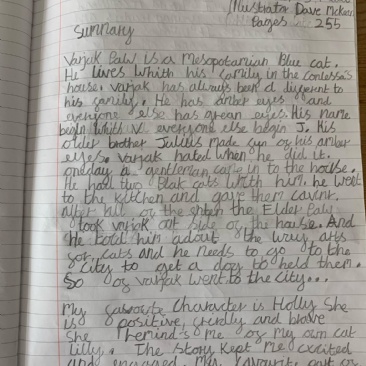 Illustrator Dave McKean
Pages 255
Summary
Varjak Paw is a Mesopotamian Blue cat.
He lives whith his family in the contessa's
house. varjak has always been d diffrent to
his family. He has amber eyes and
everyone else has green eyes. His name
begin whith V everyone else begin J. His
older brother Julius made fun of his amber
eyes. varjak hated when he did it.
oneday a gentleman came in to the house.
He had two Blak cats whith him. he went
to the kitchen and gave them
After all of the the Elder Paw
took varjak out side of the house. And
he told him adout the way arts
for cats and he needs to go to the
City to get a dog to held them.
So of varjak went to the city...
My favourite Character is Holly She
is positive, and brave
She remind's me of my own cat
Lilly. The Story kept me excited
and engaged. My favourit part of